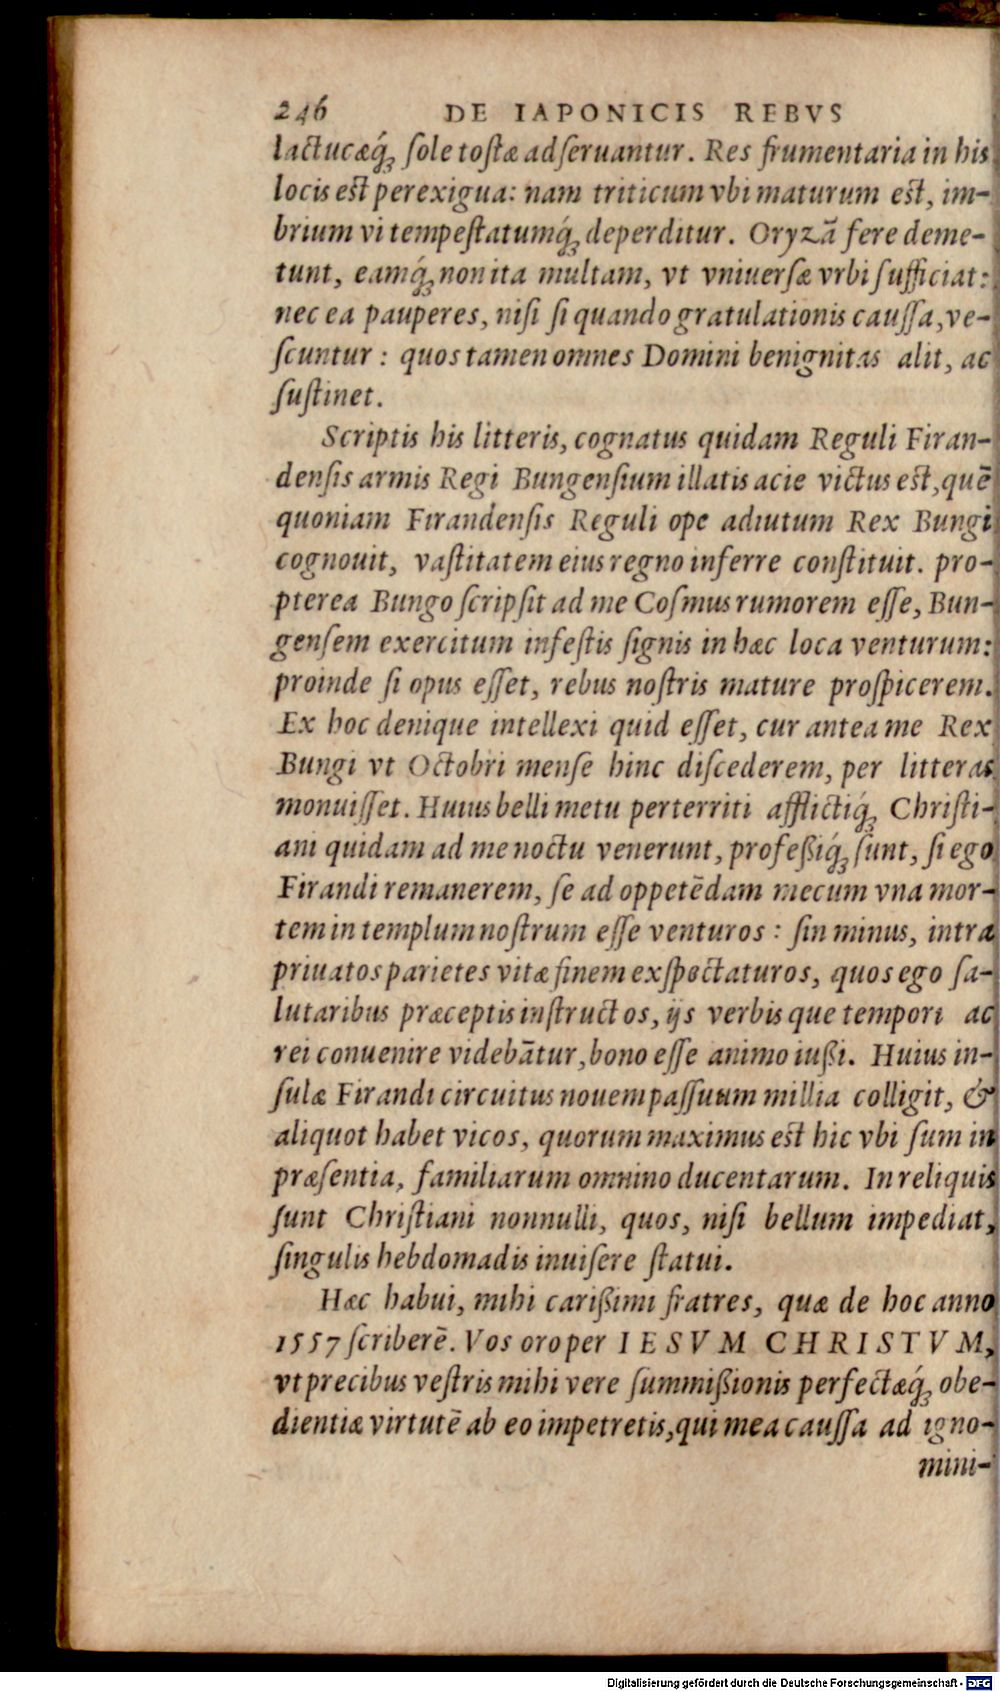 246 DE IAPONICIS REBVS
lactucæq́; ſole toſtæ adſeruantur. Res frumentaria in his
locis est perexigua: nam triticum vbi maturum est, im-
brium vi tempeſtatumq́; deperditur. Oryzā fere deme-
tunt, eamq́; non ita multam, vt vniuerſæ vrbi ſufficiat:
nec ea pauperes, niſi ſi quando gratulationis cauſſa, ve-
ſcuntur: quos tamen omnes Domini benignitas alit, ac
ſuſtinet.
Scriptis his litteris, cognatus quidam Reguli Firan-
denſis armis Regi Bungenſium illatis acie victus est, quē
quoniam Firandenſis Reguli ope adiutum Rex Bungi
cognouit, vaſtitatem eius regno inferre conſtituit. pro-
pterea Bungo ſcripſit ad me Coſmus rumorem eſſe, Bun-
genſem exercitum infeſtis ſignis in hæc loca venturum:
proinde ſi opus eſſet, rebus noſtris mature proſpicerem.
Ex hoc denique intellexi quid eſſet, cur antea me Rex
Bungi vt Octobri menſe hinc diſcederem, per litteras
monuiſſet. Huius belli metu perterriti afflictiq́; Chriſti-
ani quidam ad me noctu venerunt, profeßiq́; ſunt, ſi ego
Firandi remanerem, ſe ad oppetēdam mecum vna mor-
tem in templum noſtrum eſſe venturos: ſin minus, intra
priuatos parietes vitæ finem exſpectaturos, quos ego ſa-
lutaribus præceptis inſtructos, ijs verbis que tempori ac
rei conuenire videbātur, bono eſſe animo iußi. Huius in-
ſulæ Firandi circuitus nouem paſſuum millia colligit, &
aliquot habet vicos, quorum maximus est hic vbi ſum in
præſentia, familiarum omnino ducentarum. In reliquis
ſunt Chriſtiani nonnulli, quos, niſi bellum impediat,
ſingulis hebdomadis inuiſere ſtatui.
Hæc habui, mihi carißimi fratres, quæ de hoc anno
1557 ſcriberē. Vos oro per IESVM CHRISTVM,
vt precibus veſtris mihi vere ſummißionis perfectæq́; obe-
dientiæ virtutē ab eo impetretis, qui mea cauſſa ad igno-
mini-
Digitalisierung gefördert durch die Deutsche Forschungsgemeinschaft - DFG